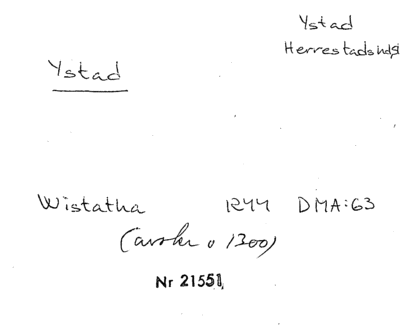 Ystad
Herrestads hd,
Ystad
Wistatha 1244 DMA:63
(avskr o 1300)
Nr 21551